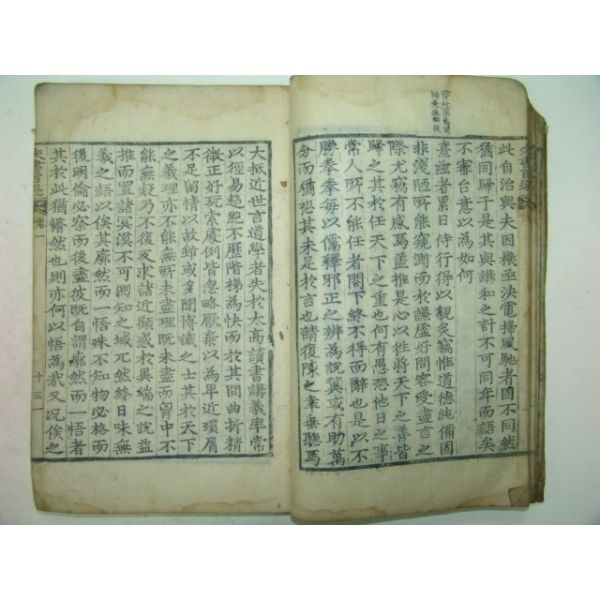 此自治與夫因機亟決電掃風馳者固不同然
猶同歸于是其與講和之計不可同年而語矣
不審台意以為如何
熹茲者累日侍行得以親炙竊惟道德純備固
非淺陋所能窺測而於謙虛好問容受盡言之
際尤竊有感焉蓋推是心以往將天下之善皆
歸之其於任天下之重也何有愚恐他日之事
常人所不能任者閤下終不得而辭也是以不
勝拳拳每以儒釋邪正之辨為說冀或有助萬
分而猶恐其未足於言也請復陳之幸垂聽焉
大抵近世言道學者失於太高讀書講義率常
以徑易超絕不歷階梯為快而於其間曲折精
微正好玩索處例皆忽略厭棄以為卑近瑣屑
不足留情以故雖或多聞博識之士其於天下
之義理亦不能無所未盡理既未盡而胷中不
能無疑乃不復反求諸近顧惑於異端之說益
推而置諸冥漠不可測知之域兀然終日味無
義之語以俟其廓然而一悟殊不知物必格而
後明倫必察而後盡彼既自謂廓然而一悟者
其於此猶懵然也則亦何以悟為哉又況俟之
十五